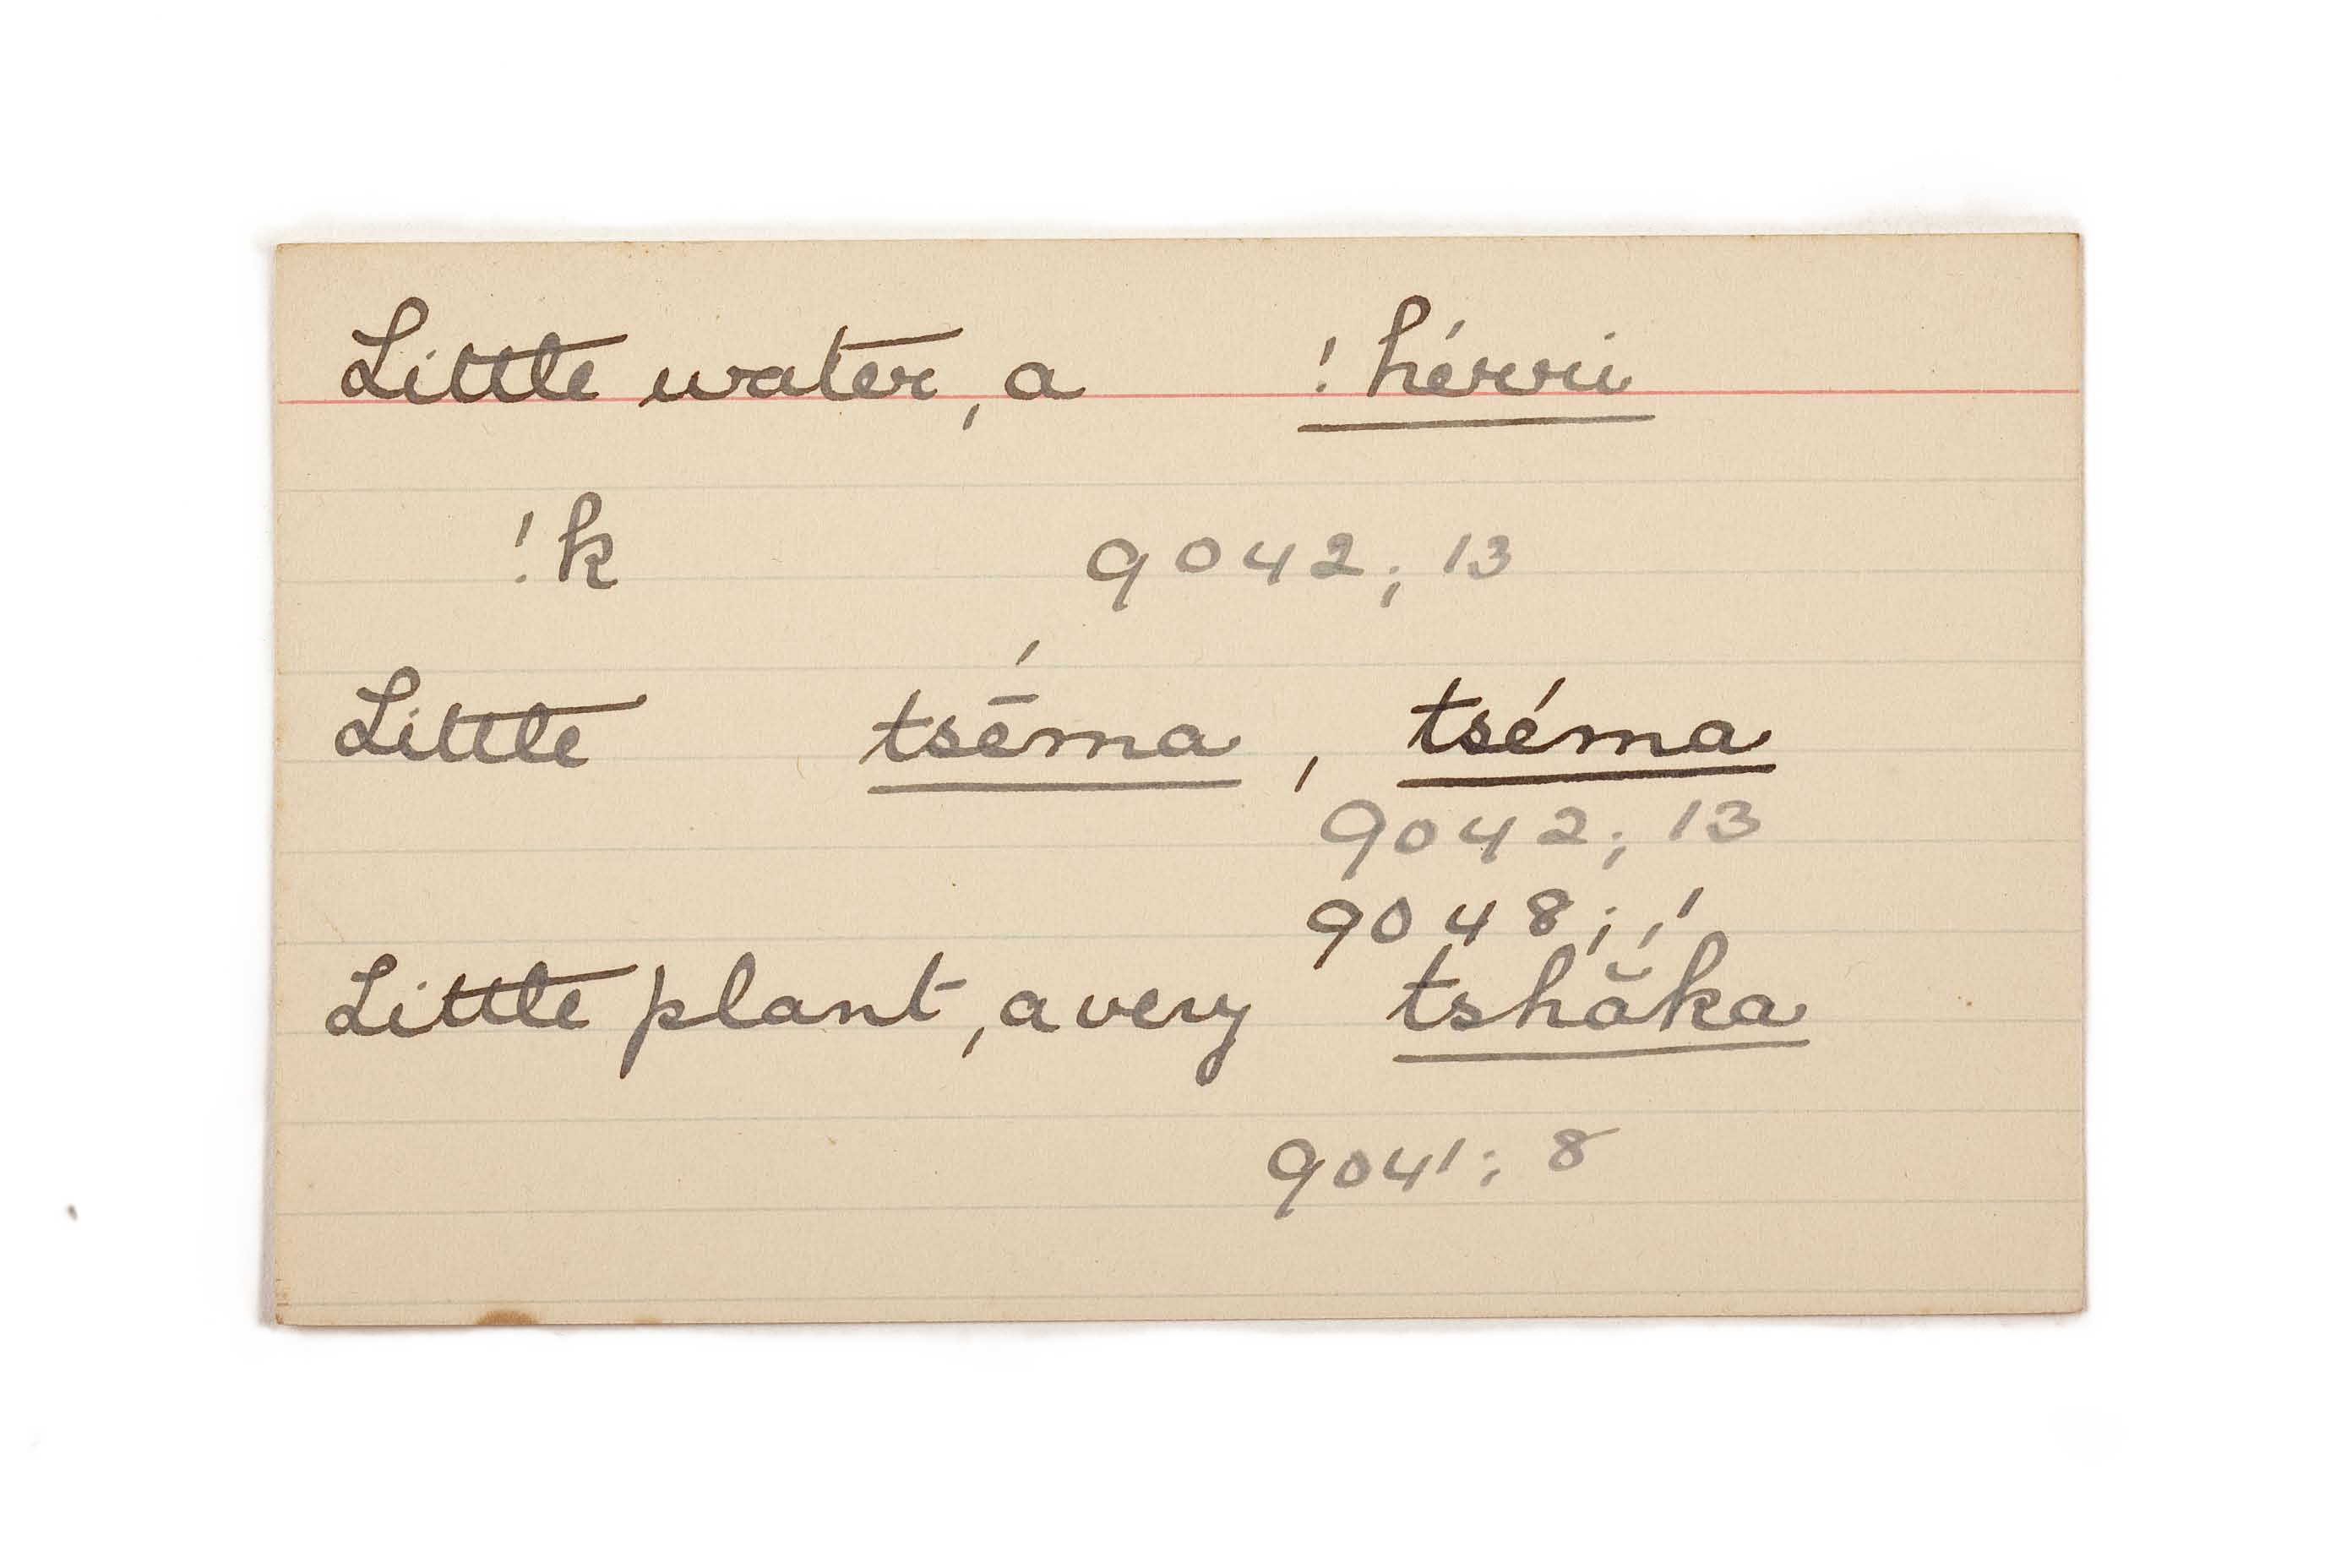 Little water, a
!k 9042; 13
Little tsḗma, tséma
9042; 13
9048; 1
Little plant, a very tshắka
9041; 8